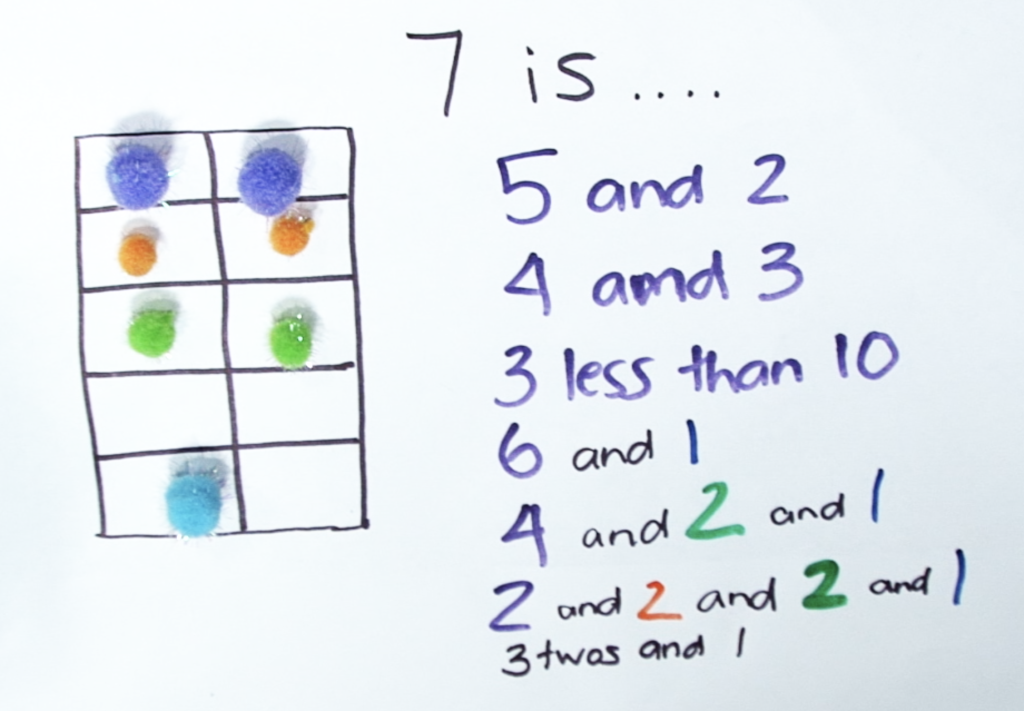 7 is ....
5 and 2
4 amd 3
3 less than 10
6 and 1
4 and 2 and 1
2 and 2 and 2 and 1
3 twos and 1